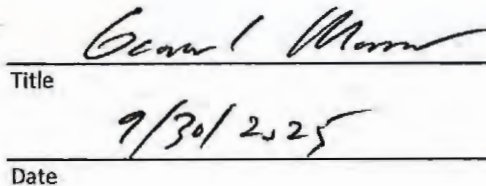 General Manager
Title
9/30/2025
Date